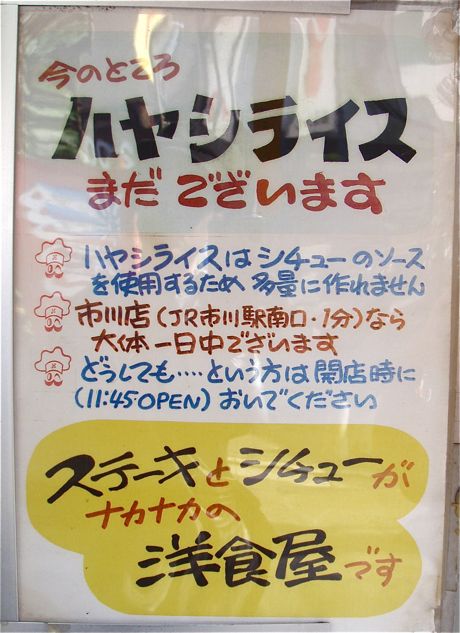 今のところ
ハヤシライス
まだ ございます
ハヤシライスは シチューのソース
を使用するため 多量に作れません
市川店(JR市川駅南口・1分)なら
大体一日中でございます
どうしても……という方は 開店時に
(11:45OPEN) おいでください
ステーキとシチューが
ナカナカの
洋食屋です